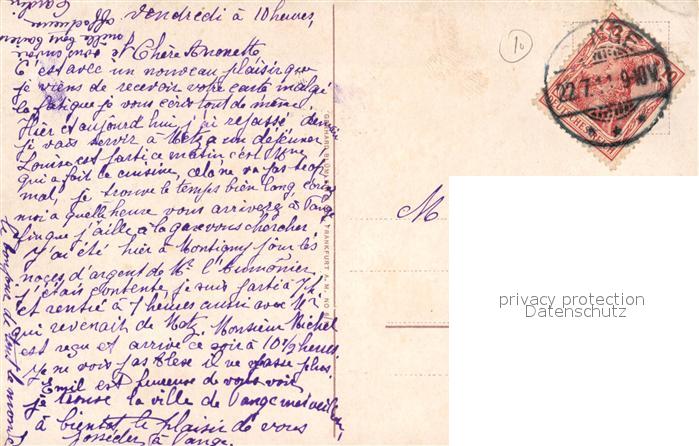 Vendredi à 10 heures,
Chère Annonette
C'est avec un nouveau plaisir que
je viens de recevoir votre carte malgré
la fatigue je vous écris tout de même.
Hier et aujourd'hui j'ai repassé demain
je vais servir à Metz a un déjeuner,
Louise est partie ce matin c'est
qui a fait la cuisine, cela ne va pas trop
mal, je trouve le temps bien long,
moi a quelle heure vous arriverez à Pange
finque j'aille a la gare vous chercher
J'ai été hier à Montigny pour les
noces d'argent de Mr l'Aumônier
j'étais contente je suis parti à
et rentré à 7 heures aussi avec
qui revenait de Metz. Monsieur Michel
est reçu et arrive ce soir à 10 1/2 heures.
Je ne vois pas il ne passe plus.
Emil est heureuse de vous voir
je trouve la ville de Pange merveilleuse,
à bientôt le plaisir de vous
posséder à Pange.
le bonjour de tout le monde
GERHARD BLÜMLEIN FRANKFURT A. M. NO
10
22.7.11 9-10V.
M
privacy protection
Datenschutz